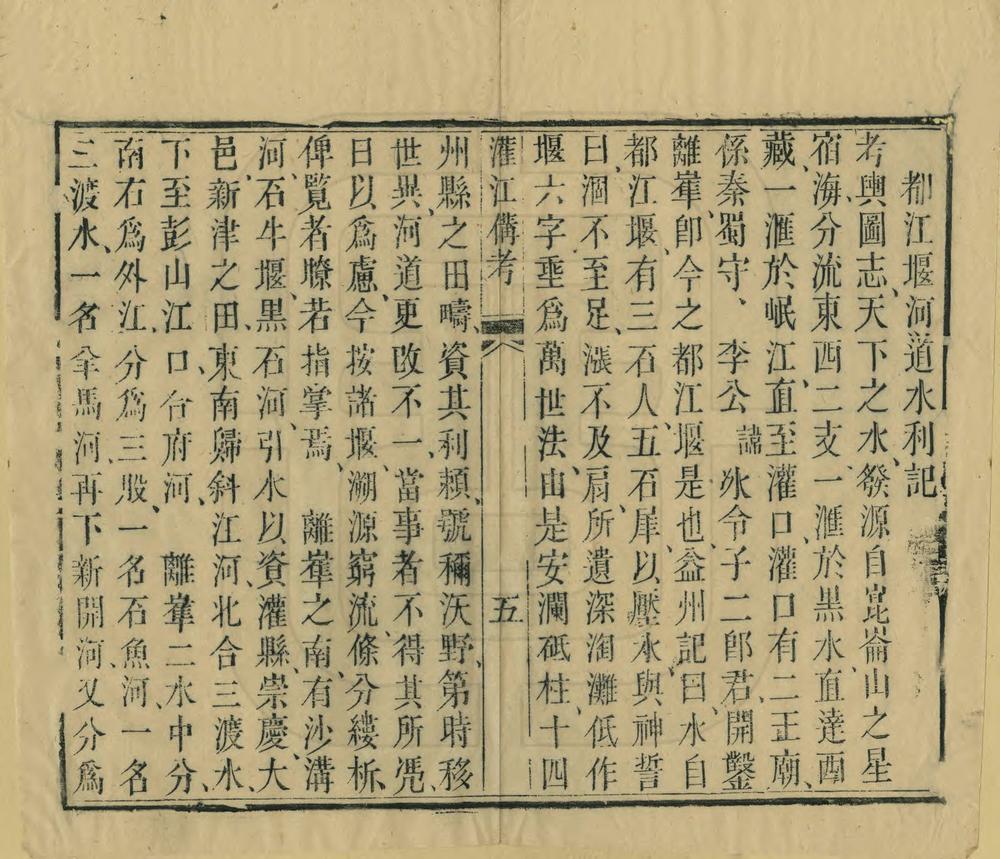 都江堰河道水利記
考輿圖志、天下之水、發源自崑崙山之星
宿海、分流東西二支、一滙於黑水直達西
藏、一滙於岷江、直至灌口、灌口有二王廟、
係秦蜀守、李公諱氷令子二郎君、開鑿
離㠑、卽今之都江堰是也、益州記曰、水自
都江堰、有三石人、五石犀、以壓水、與神誓
曰、涸不至足、漲不及肩、所遺深淘灘低作
堰六字、垂爲萬世法、由是安瀾砥柱、十四
灌江備考 五
州縣之田疇、資其利賴、號稱沃野、第時移
世異、河道更改不一、當事者不得其所憑、
日以爲慮、今按諸堰、溯源窮流、條分縷析、
俾覽者瞭若指掌焉、離㠑之南、有沙溝
河、石牛堰、黑石河、引水以資灌縣崇慶大
邑、新津之田、東南歸斜江河、北合三渡水、
下至彭山江口合府河、離㠑二水中分、
南右爲外江、分爲三股、一名石魚河、一名
三渡水、一名羊馬河、再下新開河、又分爲